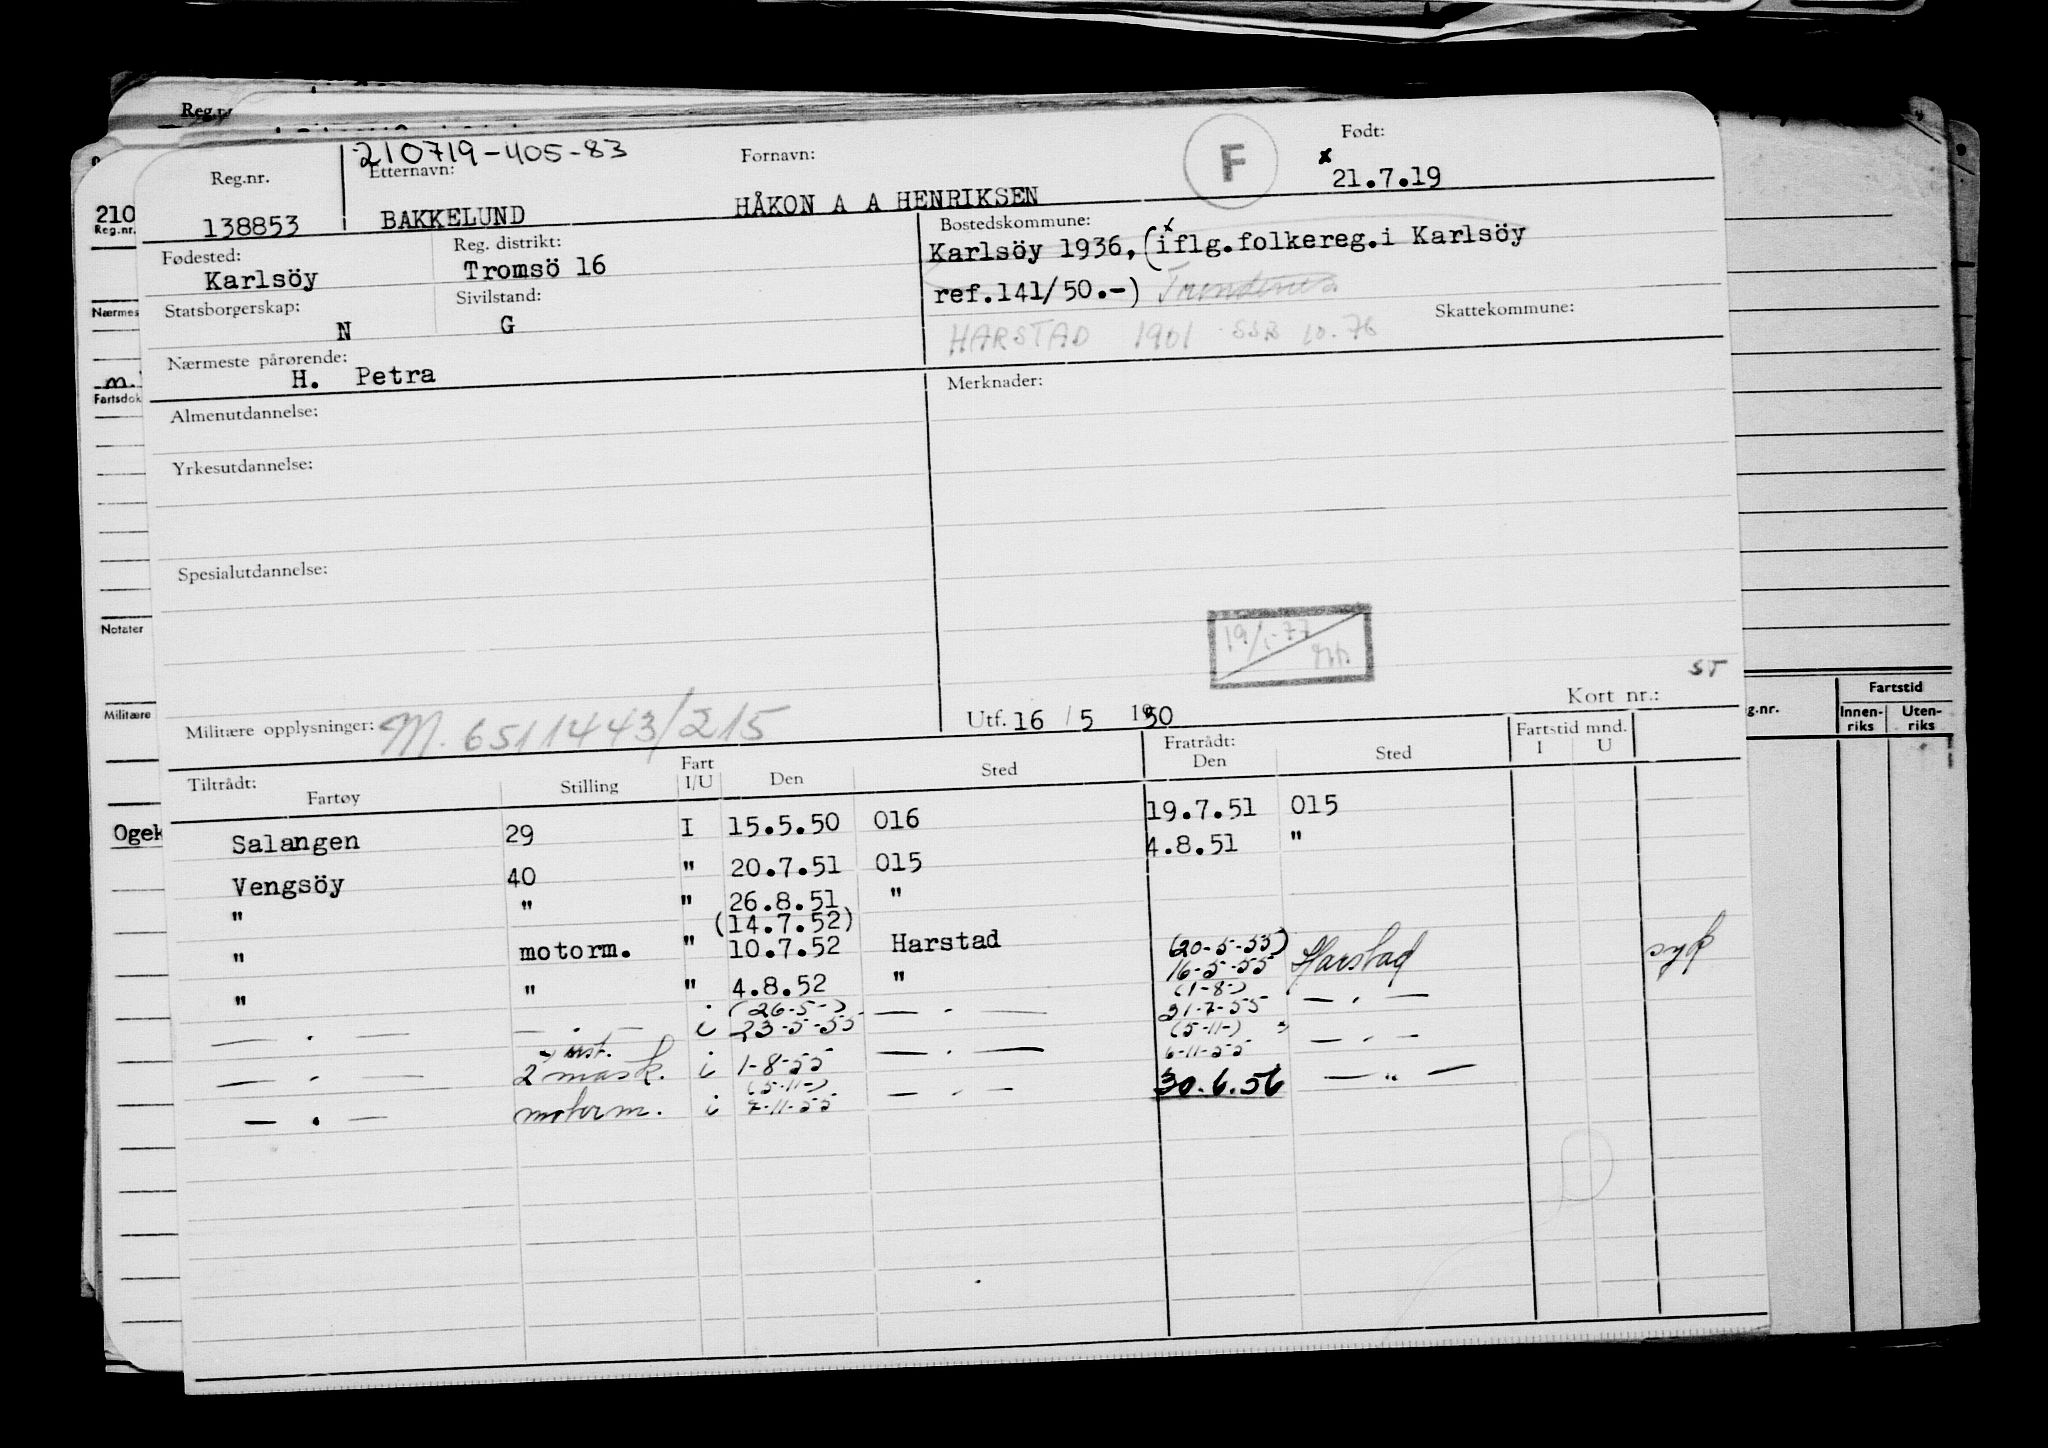 Reg.nr.
210719-405-83
Etternavn:
Fornavn:
F
Født:
x
21.7.19
138853 BAKKELUND HÅKON A A HENRIKSEN
Fødested:
Karlsöy
Reg. distrikt:
Tromsö 16
Bostedskommune:
Karlsöy 1936, (iflg.folkereg.i Karlsöy
ref.141/50.-)
Statsborgerskap:
N
Sivilstand:
G
HARSTAD 1901 SSB 10.76
Skattekommune:
Nærmeste pårørende:
H. Petra
Almenutdannelse:
Merknader:
Yrkesutdannelse:
Spesialutdannelse:
ST
Militære opplysninger: M. 6511443/215
Utf. 16 / 5 1950
Kort nr.:
Tiltrådt:
Fartøy Stilling Fart I/U Den Sted Fratrådt: Den Sted Fartstid mnd. I U
Salangen 29 I 15.5.50 016 19.7.51 015
Vengsöy 40 " 20.7.51 015 4.8.51 "
" " " 26.8.51 "
(14.7.52) (20-5-55)
" motorm. " 10.7.52 Harstad 16-5-55 Harstad syk
" " " 4.8.52 " (1-8-)
(26-5-) 31-7-55 — . —
— . — — . — i 23-5-55 — . — (5-11-)
ust.
— . — 2 mask. i 1-8-55 — . — 6-11-55 — . —
(5-11-)
— . — motorm. i 7-11-55 — . — 30.6.56 — " —
Reg.nr
210
Reg.nr.
Nærmes
m.
Fartsdok
Notater
Militære
Ogek
g.nr.
Fartstid
Innen-
riks
Uten-
riks